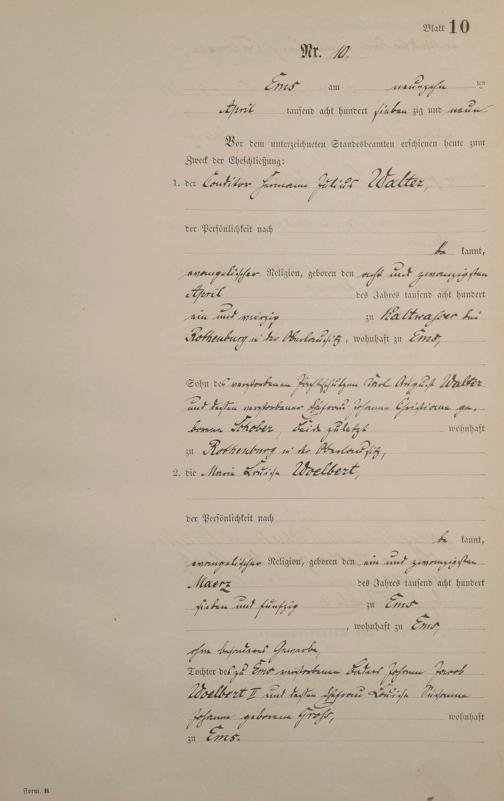 Blatt 10
Nr. 10.
Ems am neunzehn ten
April tausend acht hundert siebenzig und neun
Vor dem unterzeichneten Standesbeamten erschienen heute zum
Zweck der Eheschließung:
1. der Conditor Hermann Julius Walter,
der Persönlichkeit nach
be kannt,
evangelischer Religion, geboren den acht und zwanzigsten
April des Jahres tausend acht hundert
ein und vierzig zu Kaltwasser bei
Rothenburg in der Oberlausitz, wohnhaft zu Ems,
Sohn des verstorbenen Karl August Walter
und dessen verstorbener Ehefrau Johanne Christiane ge-
borene Schober, Beide zuletzt wohnhaft
zu Rothenburg in der Oberlausitz,
2. die Maria Louise Woelbert,
der Persönlichkeit nach
be kannt,
evangelischer Religion, geboren den ein und zwanzigsten
Maerz des Jahres tausend acht hundert
sieben und fünfzig zu Ems
, wohnhaft zu Ems,
ohne besonderes Gewerbe,
Tochter des zu Ems verstorbenen Johann Jacob
Woelbert II und dessen Ehefrau Louise Susanna
Johanna geborene Groß, wohnhaft
zu Ems.
Form. B